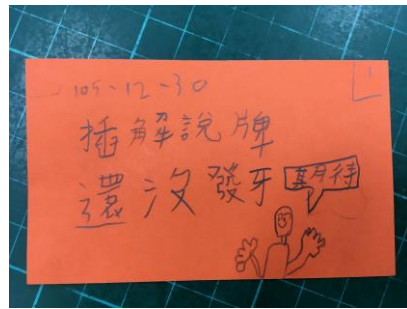 105-12-30
1
插解說牌
還沒發牙
期待